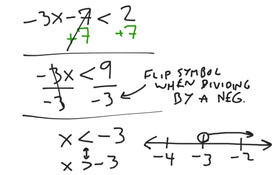 -3x - 7 < 2
+7 +7
-3x < 9
-3 -3
FLIP SYMBOL
WHEN DIVIDING
BY A NEG.
x < -3
x > -3
-4 -3 -2